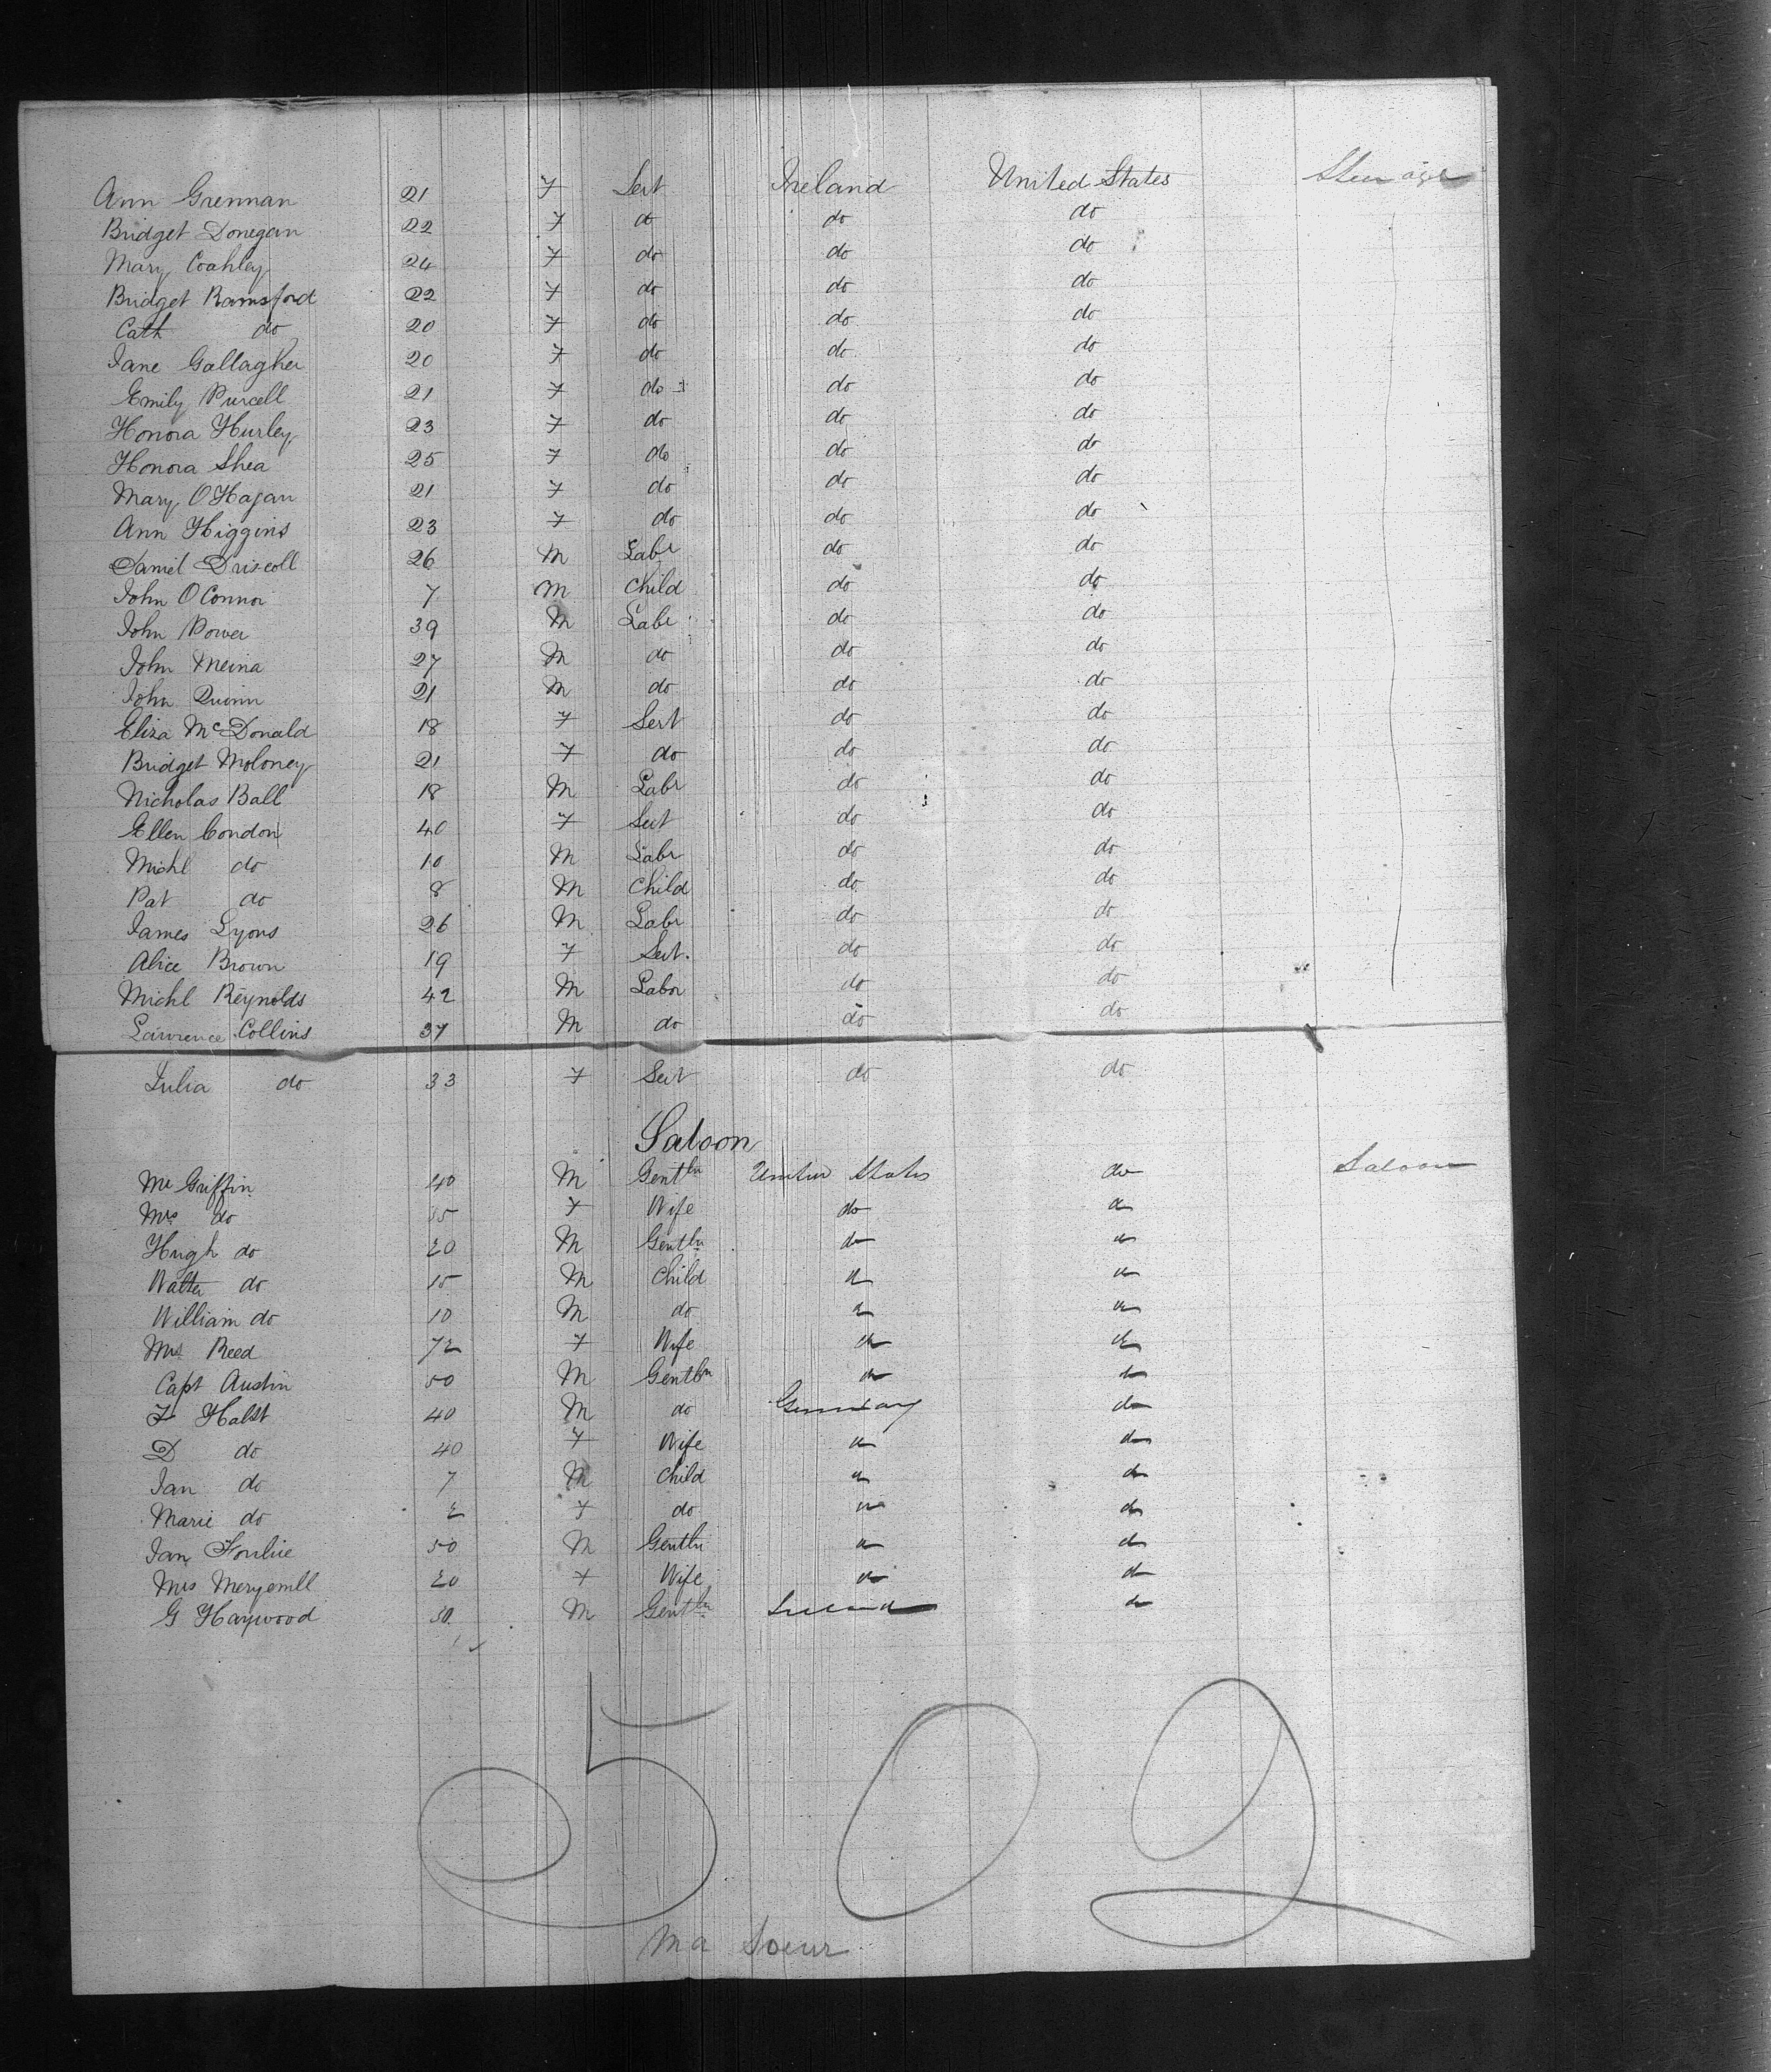 Ann Grennan 21 F Sert Ireland United States Steerage
Bridget Donegan 22 F do do do
Mary Coahley 24 F do do do
Bridget Ramsford 22 F do do do
Cath do 20 F do do do
Jane Gallagher 20 F do do do
Emily Purcell 21 F do do do
Honora Hurley 23 F do do do
Honora Shea 25 F do do do
Mary O'Hagan 21 F do do do
Ann Higgins 23 F do do do
Daniel Driscoll 26 M Labr do do
John O'Connor 7 M Child do do
John Power 39 M Labr do do
John Meina 27 M do do do
John Quinn 21 M do do do
Eliza McDonald 18 F Sert do do
Bridget Moloney 21 F do do do
Nicholas Ball 18 M Labr do do
Ellen Condon 40 F Sert do do
Michl do 10 M Labr do do
Pat do 8 M Child do do
James Lyons 26 M Labr do do
Alice Brown 19 F Sert. do do
Michl Reynolds 42 M Labor do do
Lawrence Collins 37 M do do do
Julia do 33 F Sert do do
Saloon
Mr Griffin 40 M Gentln United States do Saloon
Mrs do 35 F Wife do do
Hugh do 20 M Gentln do do
Walter do 15 M Child do do
William do 10 M do do do
Mrs Reed 72 F Wife do do
Capt Austin 50 M Gentln do do
F Halst 40 M do Germany do
D do 40 F Wife do do
Jan do 7 M Child do do
Marie do 2 F do do do
Jan 50 M Gentln do do
Mrs 20 F Wife do do
G Haywood 50 M Gentln Ireland do
502
Ma Soeur